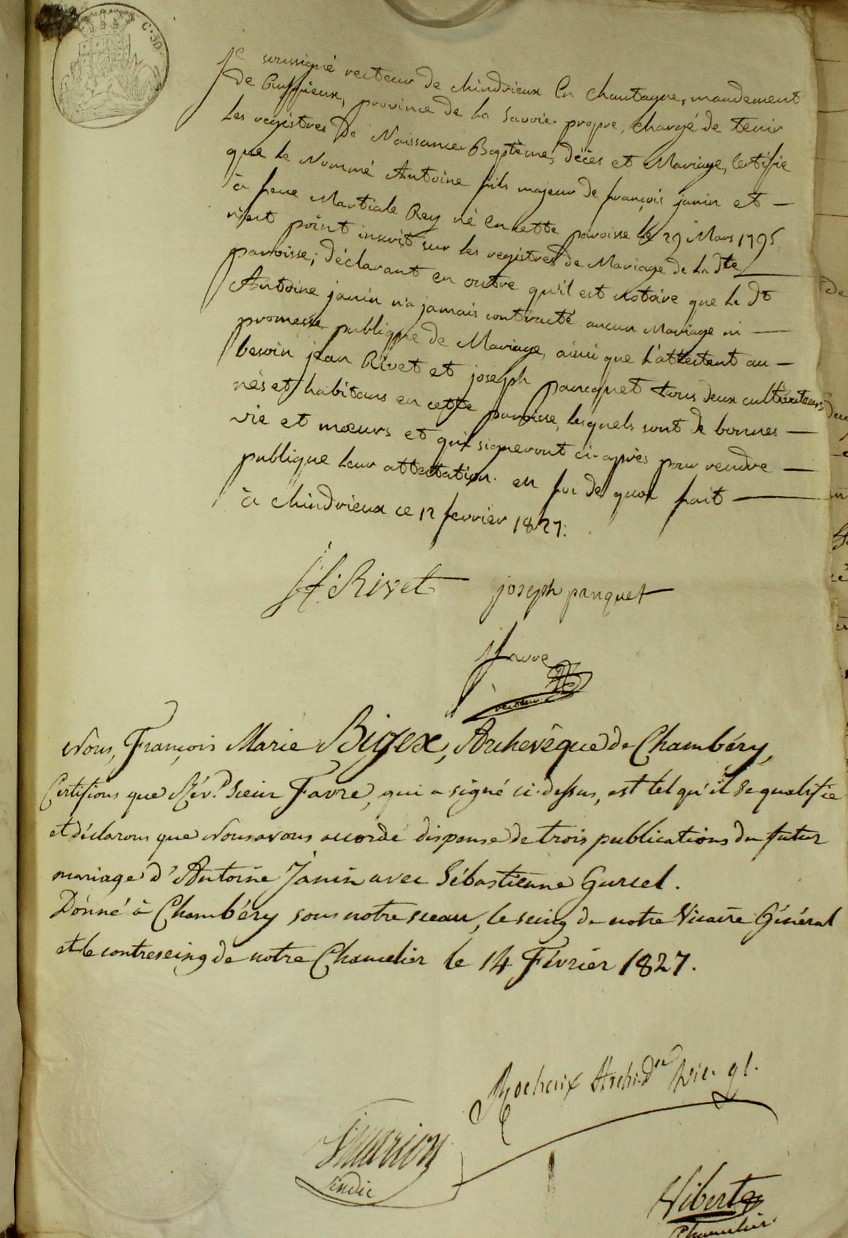 C. 50
Je soussigné recteur de chindrieux en chautagne, mandement
de Ruffieux, province de la Savoie propre, chargé de tenir
les registres de Naissance Baptêmes, décès et Mariage, certifie
que le Nommé Antoine fils majeur de françois janin et —
à feue Martiale Rey né en cette paroisse le 29 Mars 1795
n'est point inscrit sur les registres de Mariage de la dte
paroisse; déclarant en outre qu'il est notoire que le dt
Antoine janin n'a jamais contracté aucun Mariage ni —
promesse publique de Mariage, ainsi que l'attestent au —
besoin jean Rivet et joseph panquet tous deux cultivateurs
nés et habitans en cette paroisse, lesquels sont de bonnes —
vie et mœurs et qui signeront ci-après pour rendre —
publique leur attestation. en foi de quoi fait —
à chindrieux ce 12 fevrier 1827.
Rivet joseph panquet
favre
recteur
Nous, François Marie Bigex, Archevêque de Chambéry,
Certifions que Rév.d Sieur Favre, qui a signé ci-dessus, est tel qu'il se qualifie
et déclarons que nous avons accordé dispense de trois publications du futur
mariage d'Antoine Janin avec Sébastienne Gurcel.
Donné à Chambéry sous notre sceau, le seing de notre Vicaire Général
et le contreseing de notre Chancelier le 14 Février 1827.
Rochaix Archid. vic. gl.
sindic
Viberte
Chancelier